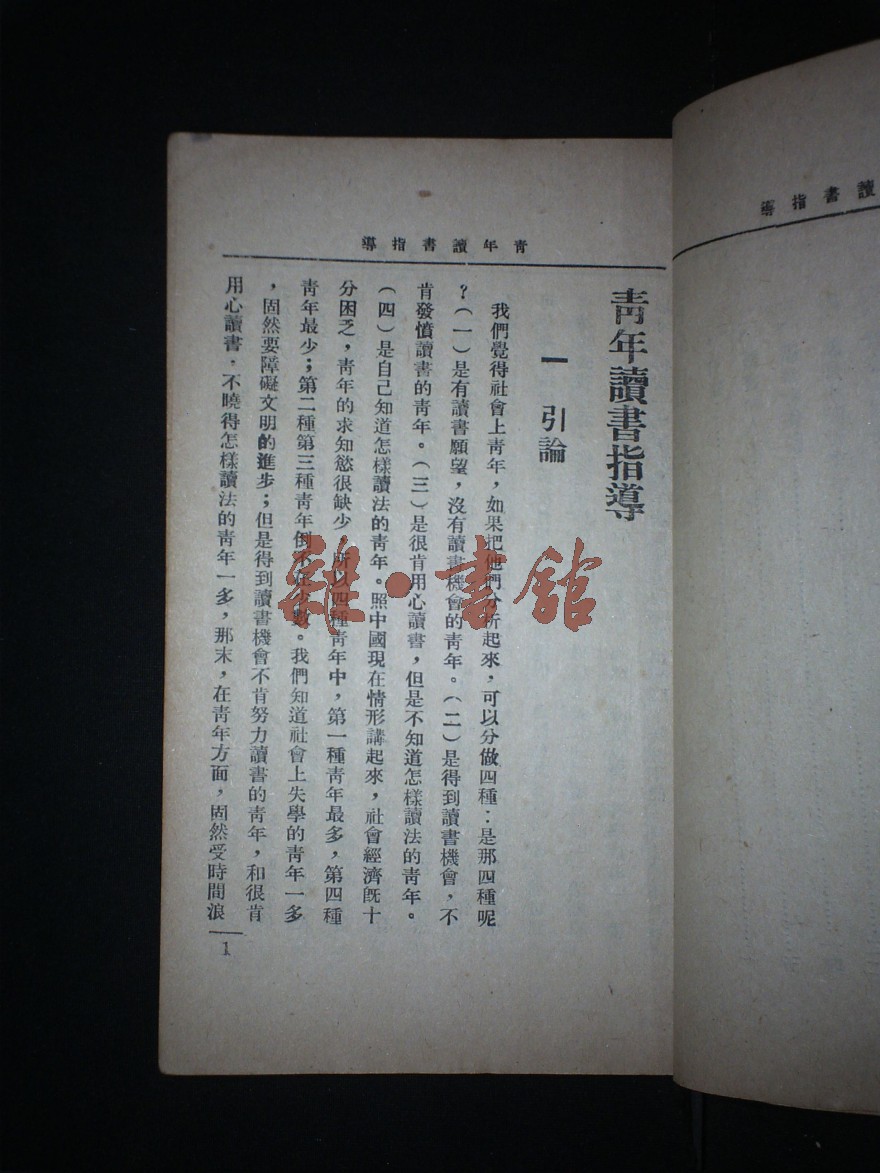 導指書讀年青
青年讀書指導
一 引論
我們覺得社會上青年，如果把他們分析起來，可以分做四種：是那四種呢
？（一）是有讀書願望，沒有讀書機會的青年。（二）是得到讀書機會，不
肯發憤讀書的青年。（三）是很肯用心讀書，但是不知道怎樣讀法的青年。
（四）是自己知道怎樣讀法的青年。照中國現在情形講起來，社會經濟既十
分困乏，青年的求知慾很缺少，所以四種青年中，第一種青年最多，第四種
青年最少；第二種第三種青年倒不在少數。我們知道社會上失學的青年一多
，固然要障礙文明的進步；但是得到讀書機會不肯努力讀書的青年，和很肯
用心讀書，不曉得怎樣讀法的青年一多，那末，在青年方面，固然受時間浪
1
導指書讀
雜·書館